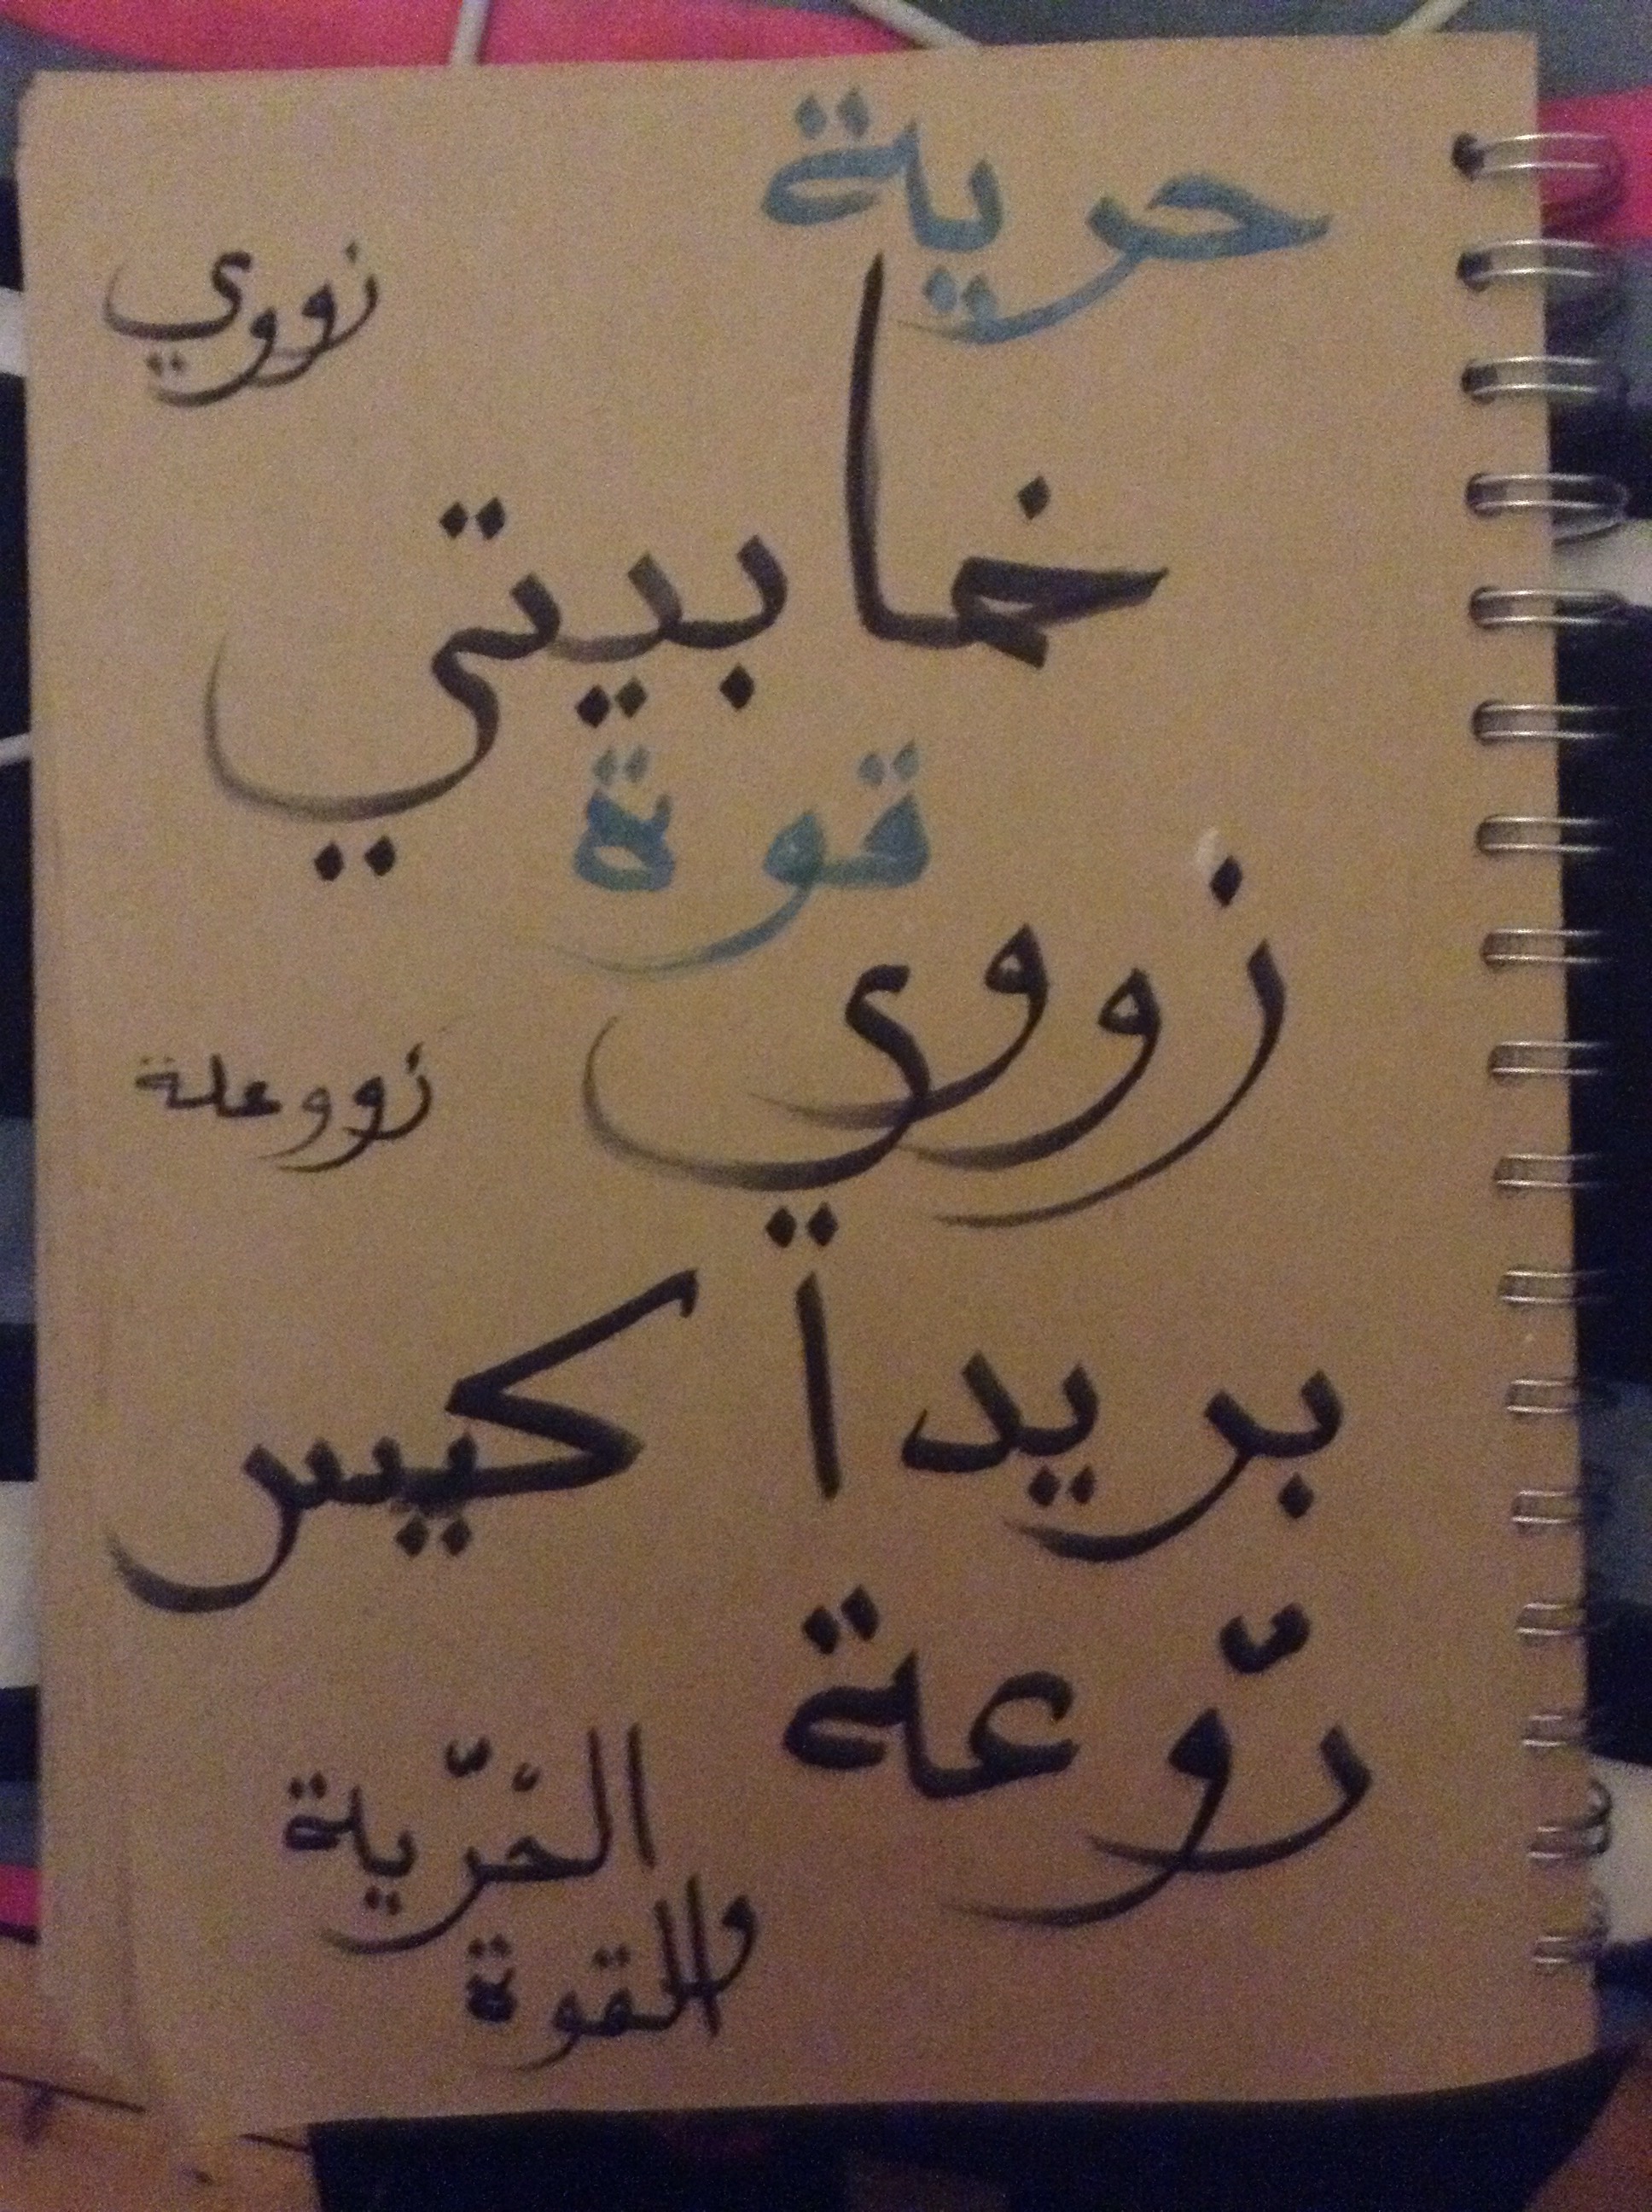 حرية
زووي
خمابيتي
قوة
زووي
زووعلة
بريدا كيس
روّعة
الحُرّية
والقوة